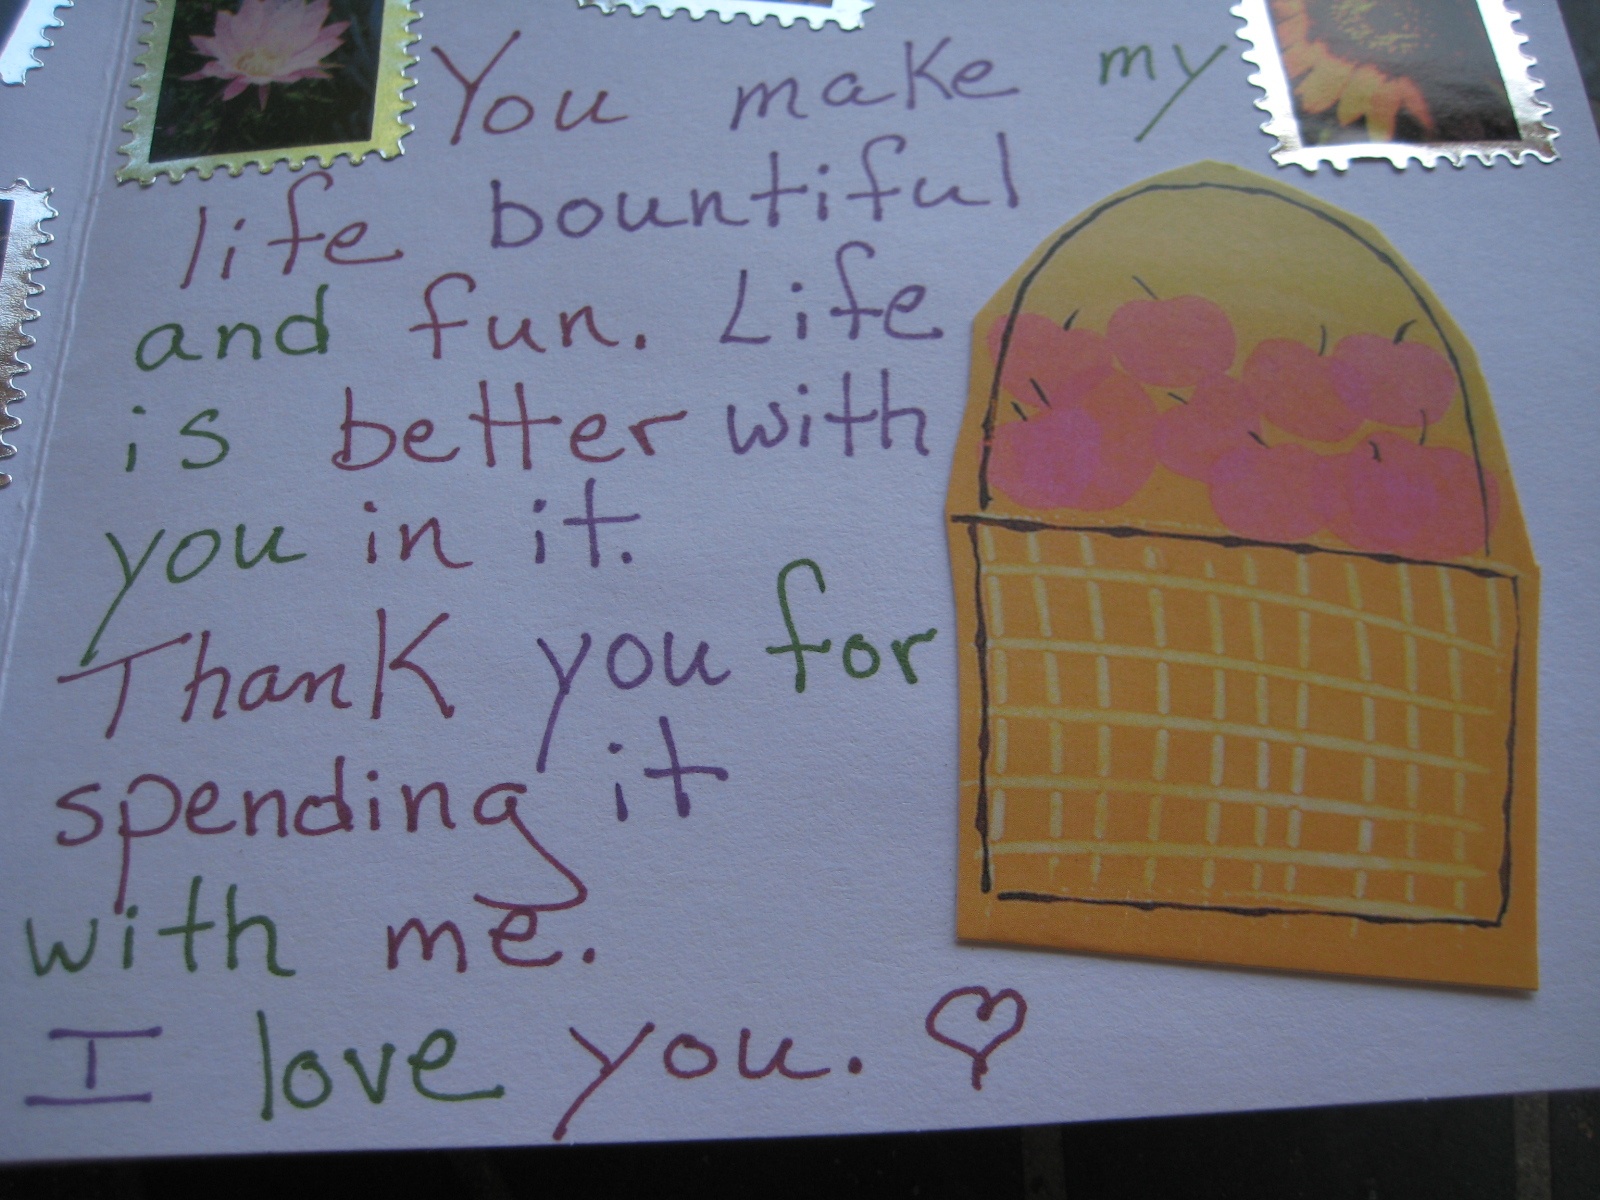 You make my
life bountiful
and fun. Life
is better with
you in it.
Thank you for
spending it
with me.
I love you. ♡